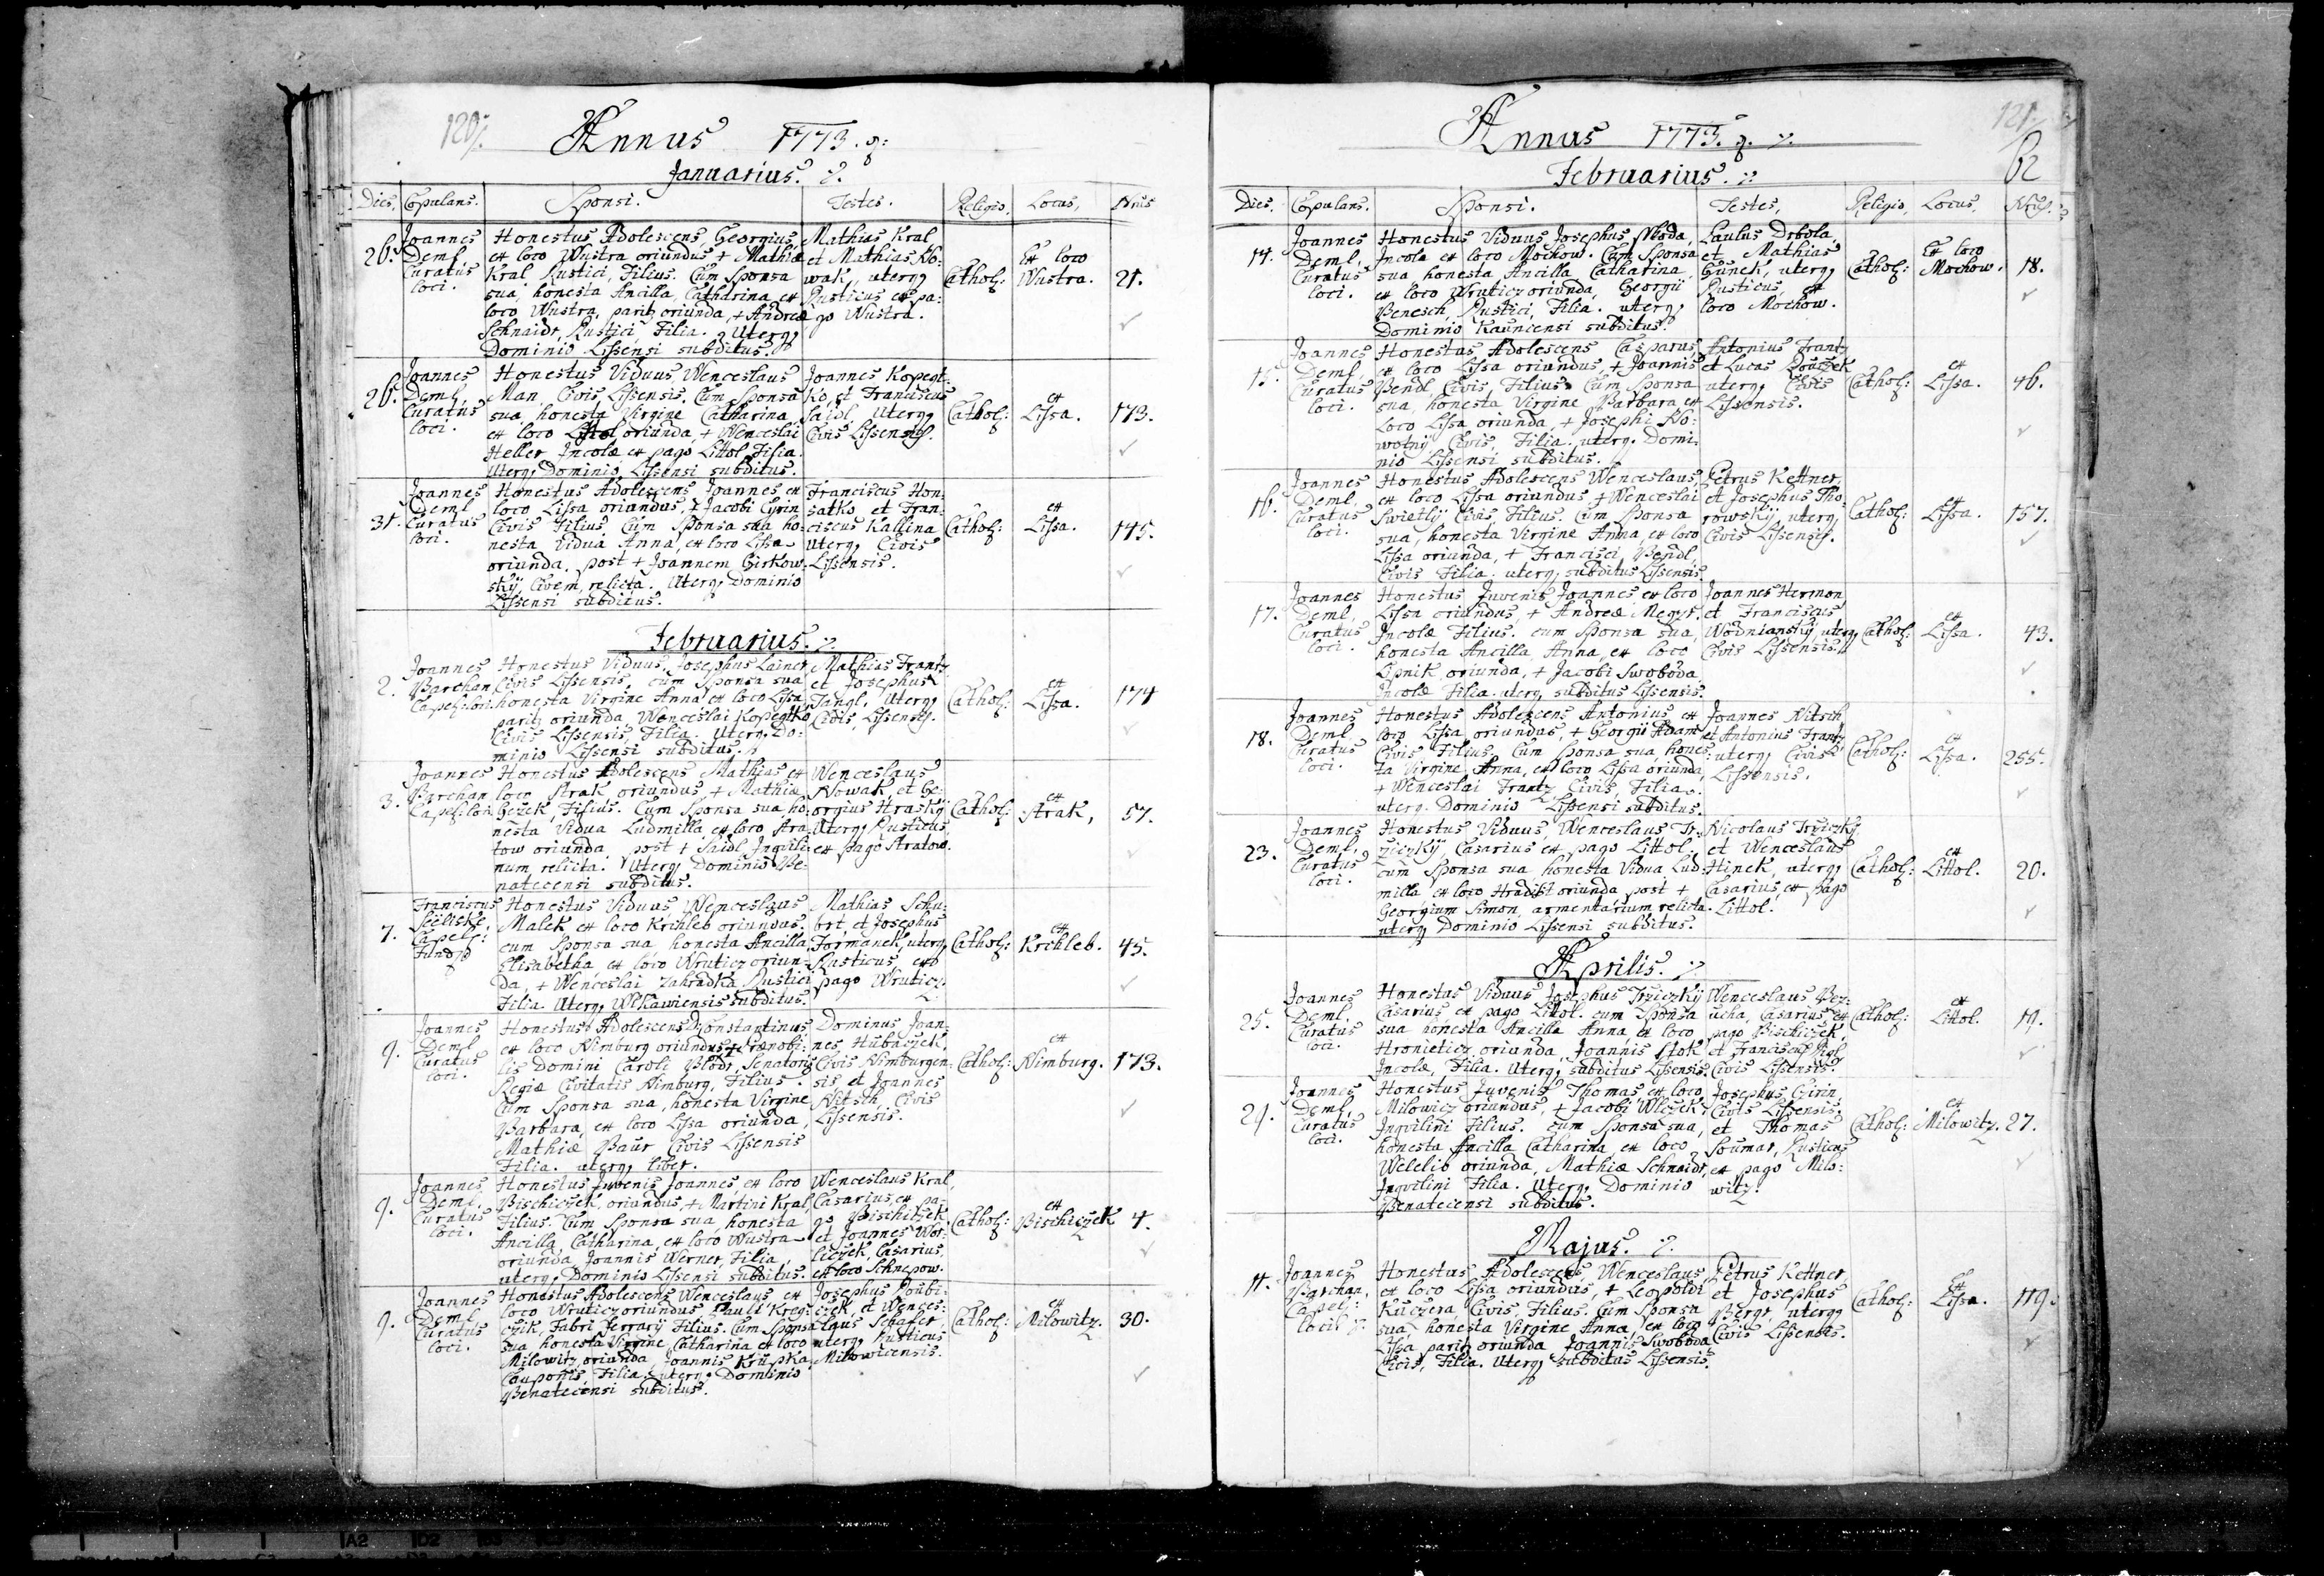 120.
Annus 1773.
Januarius.
Dies. Copulans. Sponsi. Testes. Religio. Locus. Nrus
26. Joannes Deml Curatus loci.
Honestus Adolescens, Georgius
ex loco Wustra oriundus + Mathiæ
Kral Rustici, Filius. Cum Sponsa
sua, honesta Ancilla, Catharina ex
loco Wustra, parit. oriunda, + Andreæ
Schnaidr, Rustici, Filia. Uterq.
Dominio Lissensi subditus.
Mathias Kral,
et Mathias No-
wak, uterq.
Rusticus ex pa-
go Wustra.
Cathol: Ex loco Wustra. 21.
26. Joannes Deml, Curatus loci.
Honestus Viduus, Wenceslaus
Man, Civis Lissensis. Cum Sponsa
sua, honesta Virgine Catharina,
ex loco Littol oriunda, + Wenceslai
Heller Incolæ ex pago Littol Filia.
Uterq. Dominio Lissensi subditus.
Joannes Kopegt-
ko, et Franciscus
Saidl, Uterq.
Civis Lissensis.
Cathol: ex Lissa. 173.
31. Joannes Deml Curatus loci.
Honestus Adolescens Joannes ex
loco Lissa oriundus, + Jacobi Cyrin
Civis Filius. Cum Sponsa sua ho-
nesta Vidua Anna, ex loco Lissa
oriunda, post + Joannem Girkow-
skÿ, Civem, relicta. Uterq. Dominio
Lissensi subditus.
Franciscus Hon-
satko et Fran-
ciscus Kallina
Uterq. Civis
Lissensis.
Cathol: ex Lissa. 145.
Februarius.
2. Joannes Barchan, Capel: loci.
Honestus Viduus, Josephus Lainer
Civis Lissensis, cum Sponsa sua
honesta Virgine Anna, ex loco Lissa
parit. oriunda, Wenceslai Kopegtko
Civis Lissensis, Filia. Uterq. Do-
minio Lissensi subditus.
Mathias Frantz
et Josephus
Tangl, Uterq.
Civis, Lissensis.
Cathol: ex Lissa. 174
3. Joannes Barchan Capel: loci.
Honestus Adolescens Mathias ex
loco Strak oriundus, + Mathiæ
Gežek, Filius. Cum Sponsa sua, ho-
nesta Vidua Ludmilla, ex loco Stra-
tow oriunda post + Saidl Inquili-
num relicta. Uterq. Dominio Be-
natecensi subditus.
Wenceslaus
Nowak et Ge-
orgius Hraskÿ
Uterq. Rusticus,
ex pago Stratow.
Cathol: ex Strak, 57.
7. Franciscus Capel: Fund:
Honestus Viduus Wenceslaus
Malek ex loco Krchleb oriundus.
cum Sponsa sua honesta Ancilla,
Elisabetha, ex loco Wruticz oriun-
da, + Wenceslai Zahradka, Rustici
Filia. Uterq. Wlkawiensis subditus.
Mathias Schu-
brt, et Josephus
Formanek, uterq.
Rusticus ex
pago Wruticz.
Cathol: ex Krchleb. 45.
9. Joannes Deml Curatus loci.
Honestus Adolescens Constantinus
ex loco Nimburg oriundus, Prænobi-
lis Domini Caroli Blodr, Senatoris
Regiæ Civitatis Nimburg, Filius.
Cum Sponsa sua, honesta Virgine
Barbara, ex loco Lissa oriunda,
Mathiæ Baur Civis Lissensis
Filia. uterq. liber.
Dominus Joan-
nes Hubaczek,
Civis Nimburgen-
sis, et Joannes
Nitsch, Civis
Lissensis.
Cathol: ex Nimburg. 173.
9. Joannes Deml, Curatus loci.
Honestus Juvenis Joannes, ex loco
Bischiczek, oriundus, + Martini Kral,
Filius. Cum Sponsa sua, honesta
Ancilla, Catharina, ex loco Wustra
oriunda, Joannis Werner, Filia,
uterq. Dominio Lissensi subditus.
Wenceslaus Kral,
Casarius, ex pa-
go Bischiczek
et Joannes Wor-
liczek, Casarius,
ex loco Schnepow.
Cathol: ex Bischiczek 4.
9. Joannes Deml, Curatus loci.
Honestus Adolescens Wenceslaus ex
loco Wruticz oriundus Pauli Krog-
czik, Fabri Ferrarÿ Filius. Cum Sponsa
sua honesta Virgine, Catharina ex loco
Milowitz oriunda, Joannis Krupka,
Cauponis, Filia, uterq. Dominio
Benatecensi subditus.
Josephus Daubi-
czek, et Wences-
laus Schafer,
uterq. Rusticus
Milowicensis.
Cathol: ex Milowitz. 30.
121.
62
Annus 1773.
Februarius.
Dies. Copulans. Sponsi. Testes, Religio, Locus, Nrus.
14. Joannes Deml, Curatus loci.
Honestus Viduus, Josephus Woda,
Incola ex loco Mochow. Cum Sponsa
sua honesta Ancilla Catharina
ex loco Wruticz oriunda, Georgii
Benesch, Rustici, Filia. uterq.
Dominio Kaunicensi subditus.
Paulus Drbola,
et Mathias
Gunek, uterq.
Rusticus, ex
loco Mochow.
Cathol: Ex loco Mochow. 18.
15. Joannes Deml, Curatus loci.
Honestus Adolescens Casparus,
ex loco Lissa oriundus, + Joannis
Bendl, Civis, Filius. Cum Sponsa
sua, honesta Virgine Barbara ex
Loco Lissa oriunda, + Josephi No-
wotnÿ Civis, Filia. uterq. Domi-
nio Lissensi subditus.
Antonius Frantz
et Lucas Douczek
uterq. Civis
Lissensis.
Cathol: ex Lissa. 46.
16. Joannes Deml, Curatus loci.
Honestus Adolescens Wenceslaus,
ex loco Lissa oriundus, + Wenceslai
Swietlÿ Civis Filius. Cum Sponsa
sua, honesta Virgine Anna, ex loco
Lissa oriunda, + Francisci, Bendl,
Civis Filia. uterq. subditus Lissensis.
Petrus Kettner,
et Josephus Tho-
rowskÿ, uterq.
Civis Lissensis.
Cathol: ex Lissa. 157.
17. Joannes Deml, Curatus loci.
Honestus Juvenis Joannes ex loco
Lissa oriundus, + Andreæ Megzr,
Incolæ Filius. cum Sponsa sua,
honesta Ancilla Anna, ex loco
Lipnik oriunda, + Jacobi Swoboda,
Incolæ Filia. uterq. subditus Lissensis.
Joannes Hermon
et Franciscus
Wodnianskÿ, uterq.
Civis Lissensis.
Cathol: ex Lissa. 43.
18. Joannes Deml, Curatus loci.
Honestus Adolescens Antonius ex
loco Lissa oriundus, + Georgii Adam
Civis Filius. Cum Sponsa sua, hones-
ta Virgine Anna, ex loco Lissa oriunda,
+ Wenceslai Frantz Civis, Filia.
uterq. Dominio Lissensi subditus.
Joannes Nitsch
et Antonius Frantz
uterq. Civis
Lissensis.
Cathol: ex Lissa. 255.
23. Joannes Deml, Curatus loci.
Honestus Viduus, Wenceslaus Tr-
ziczkÿ, Casarius ex pago Littol.
cum Sponsa sua honesta Vidua Lud-
milla ex loco Hradist oriunda post +
Georgium Simon, armentarium relicta.
uterq. Dominio Lissensi subditus.
Nicolaus Trziczkÿ
et Wenceslaus
Hinek, uterq.
Casarius, ex pago
Littol.
Cathol: ex Littol. 20.
Aprilis.
25. Joannes Deml, Curatus loci.
Honestus Viduus Josephus Trziczkÿ
Casarius, ex pago Littol. cum Sponsa
sua honesta Ancilla Anna, ex loco
Hronieticz oriunda, Joannis Stok
Incolæ, Filia. Uterq. subditus Lissensis.
Wenceslaus Pez-
ucha, Casarius ex
pago Bischiczek,
et Franciscus Pigl
Civis Lissensis.
Cathol: ex Littol. 19.
29. Joannes Deml, Curatus loci.
Honestus Juvenis Thomas, ex loco
Milowicz oriundus, + Jacobi Wlczek,
Inquilini Filius. cum Sponsa sua,
honesta Ancilla Catharina, ex loco
Welelib oriunda, Mathiæ Schnaidr,
Inquilini Filia. Uterq. Dominio
Benatecensi subditus.
Josephus Czirin,
Civis Lissensis,
et Thomas
Soumar, Rusticus
ex pago Milo-
witz.
Cathol: ex Milowitz. 27.
Majus.
11. Joannes Barchan, Capel: loci
Honestus Adolescens Wenceslaus,
ex loco Lissa oriundus, + Leopoldi
Kuczera Civis, Filius. Cum Sponsa
sua, honesta Virgine Anna, ex loco
Lissa parit. oriunda Joannis Swoboda
Civis, Filia. Uterq. subditus Lissensis.
Petrus Kettner,
et Josephus
Bergr, uterq.
Civis Lissensis.
Cathol: ex Lissa. 119.
A2 D2